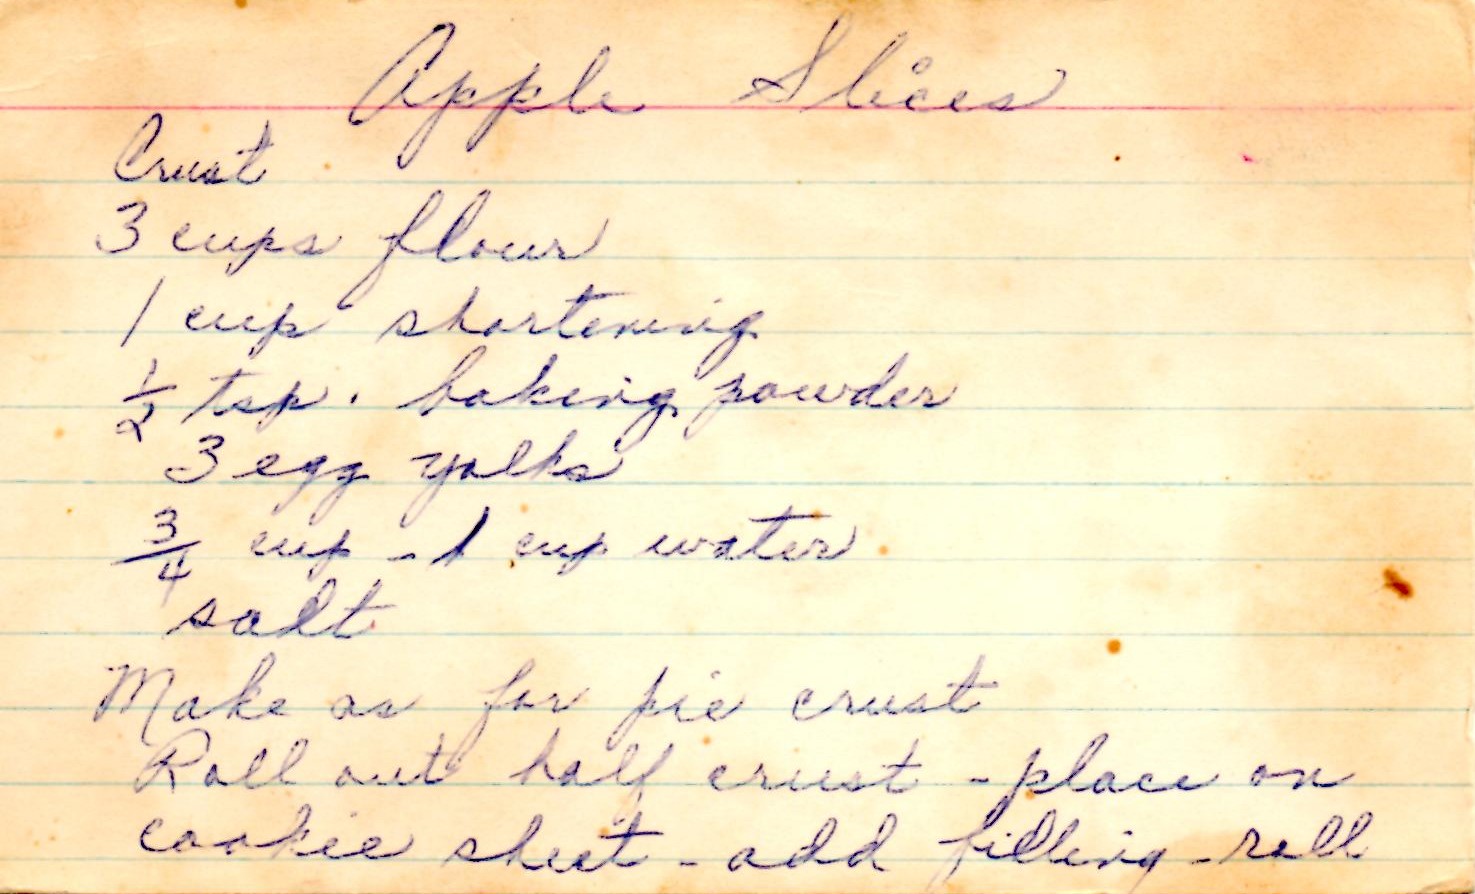 Apple Slices
Crust
3 cups flour
1 cup shortening
1/2 tsp. baking powder
3 egg yolks
3/4 cup - 1 cup water
salt
Make as for pie crust
Roll out half crust - place on
cookie sheet - add filling - roll